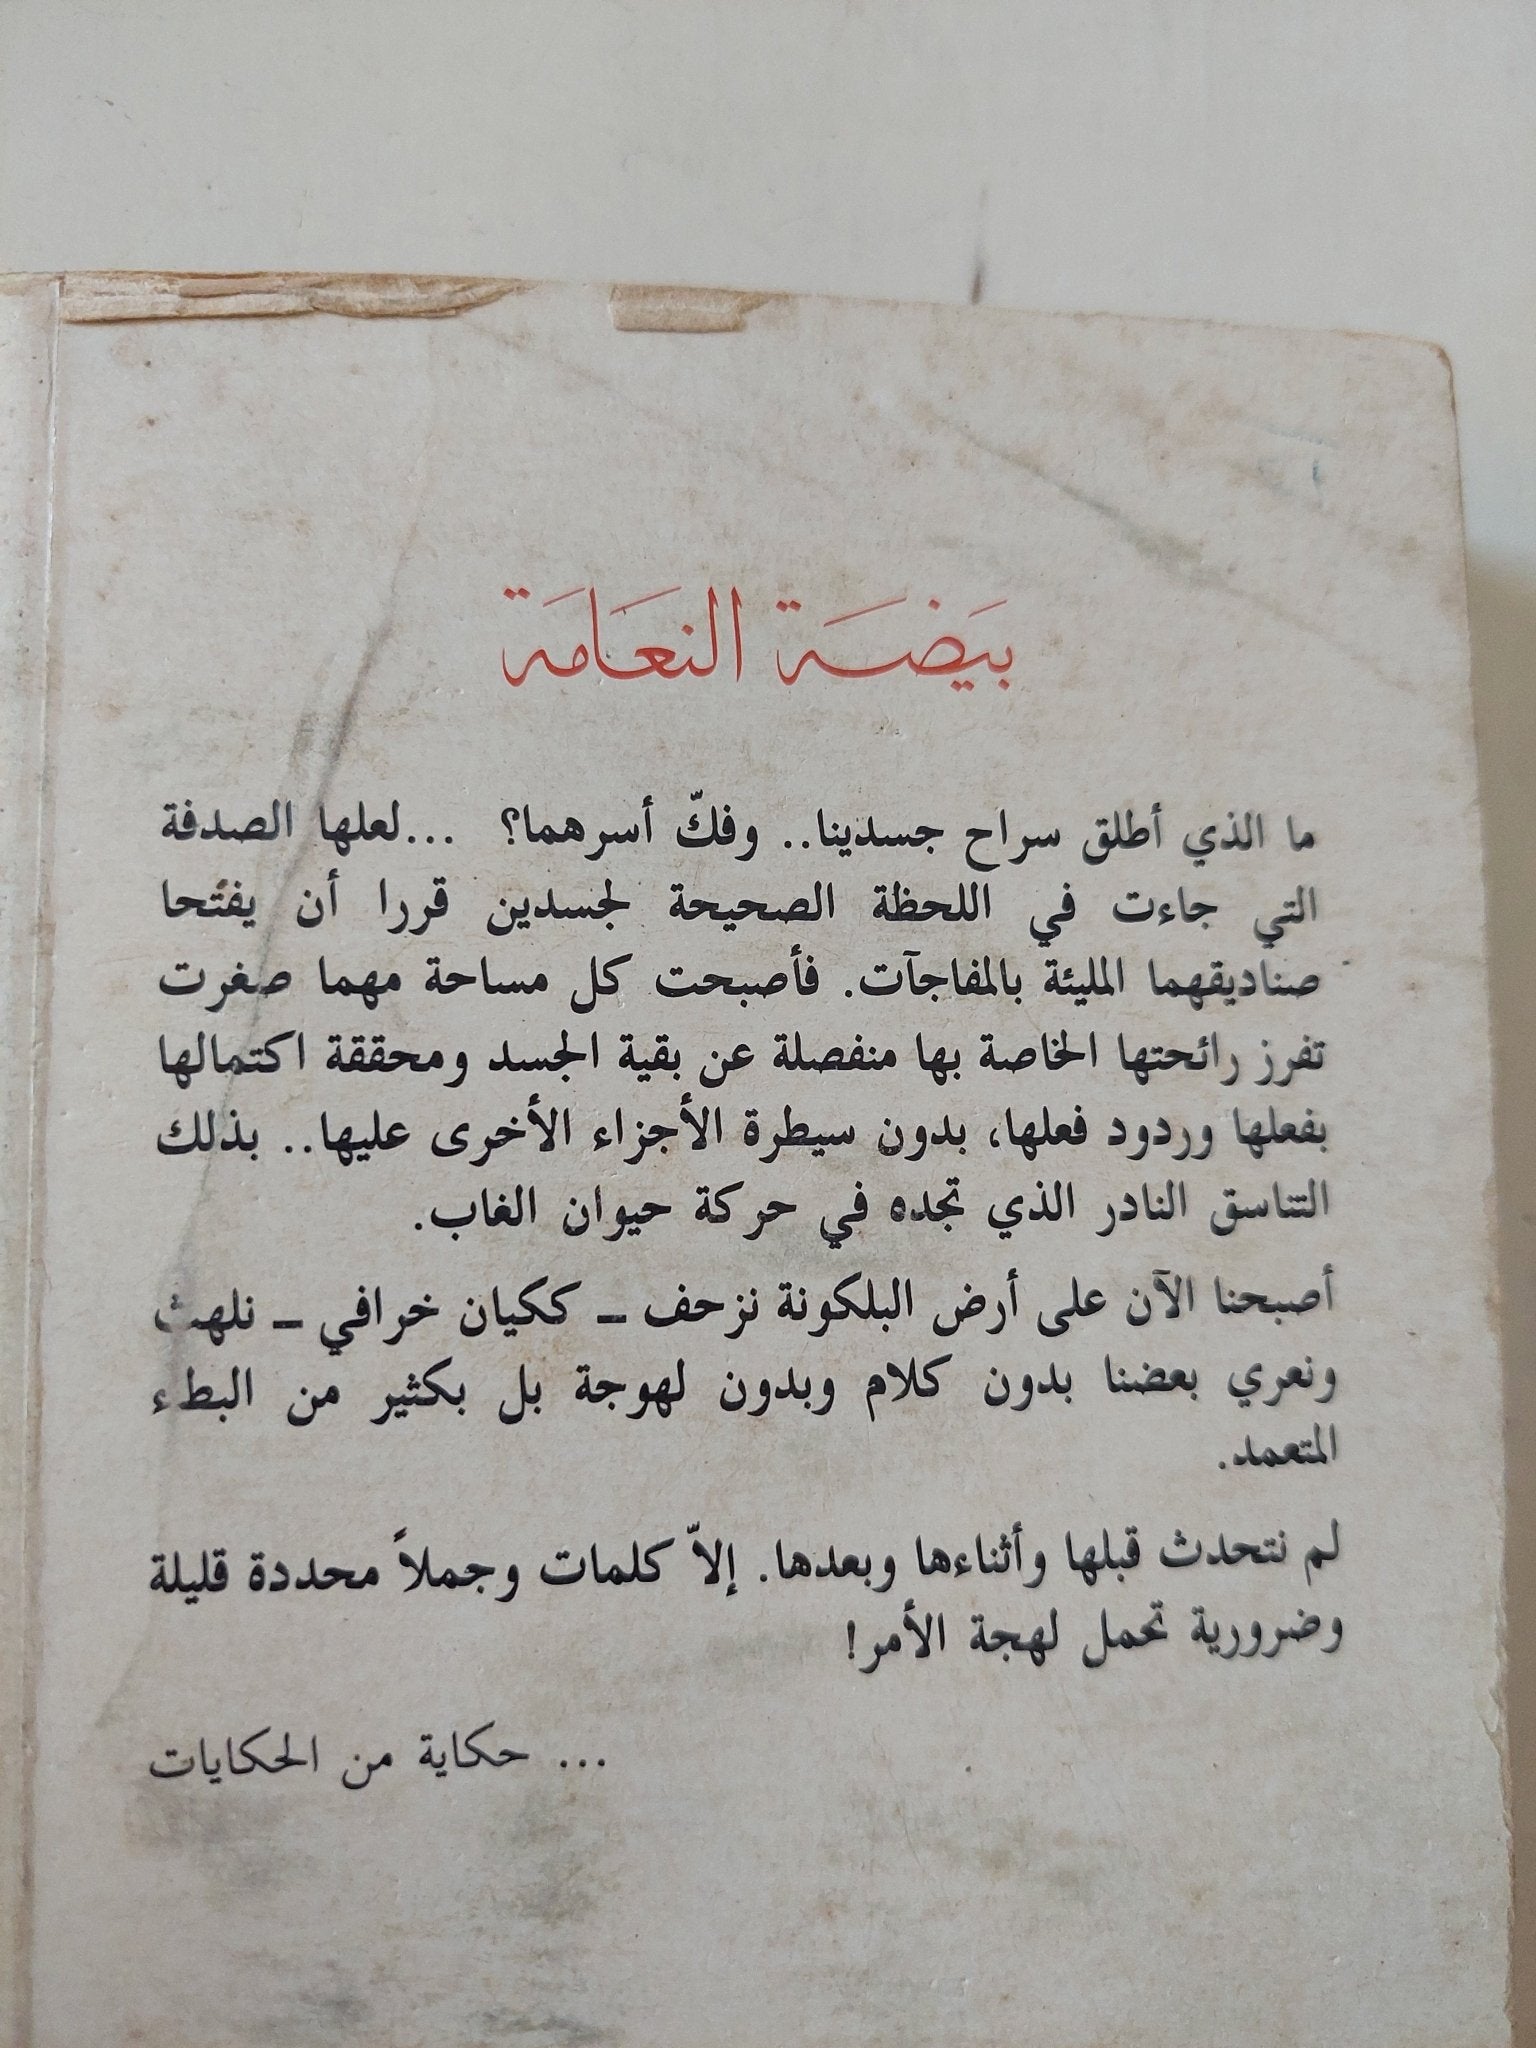 بيضة النعامة
ما الذي أطلق سراح جسدينا.. وفكّ أسرهما؟ ...لعلها الصدفة
التي جاءت في اللحظة الصحيحة لجسدين قررا أن يفتحا
صناديقهما المليئة بالمفاجآت. فأصبحت كل مساحة مهما صغرت
تفرز رائحتها الخاصة بها منفصلة عن بقية الجسد ومحققة اكتمالها
بفعلها وردود فعلها، بدون سيطرة الأجزاء الأخرى عليها.. بذلك
التناسق النادر الذي تجده في حركة حيوان الغاب.
أصبحنا الآن على أرض البلكونة نزحف ــ ككيان خرافي ــ نلهث
ونعري بعضنا بدون كلام وبدون لهوجة بل بكثير من البطء
المتعمد.
لم نتحدث قبلها وأثناءها وبعدها. إلاّ كلمات وجملاً محددة قليلة
وضرورية تحمل لهجة الأمر!
... حكاية من الحكايات